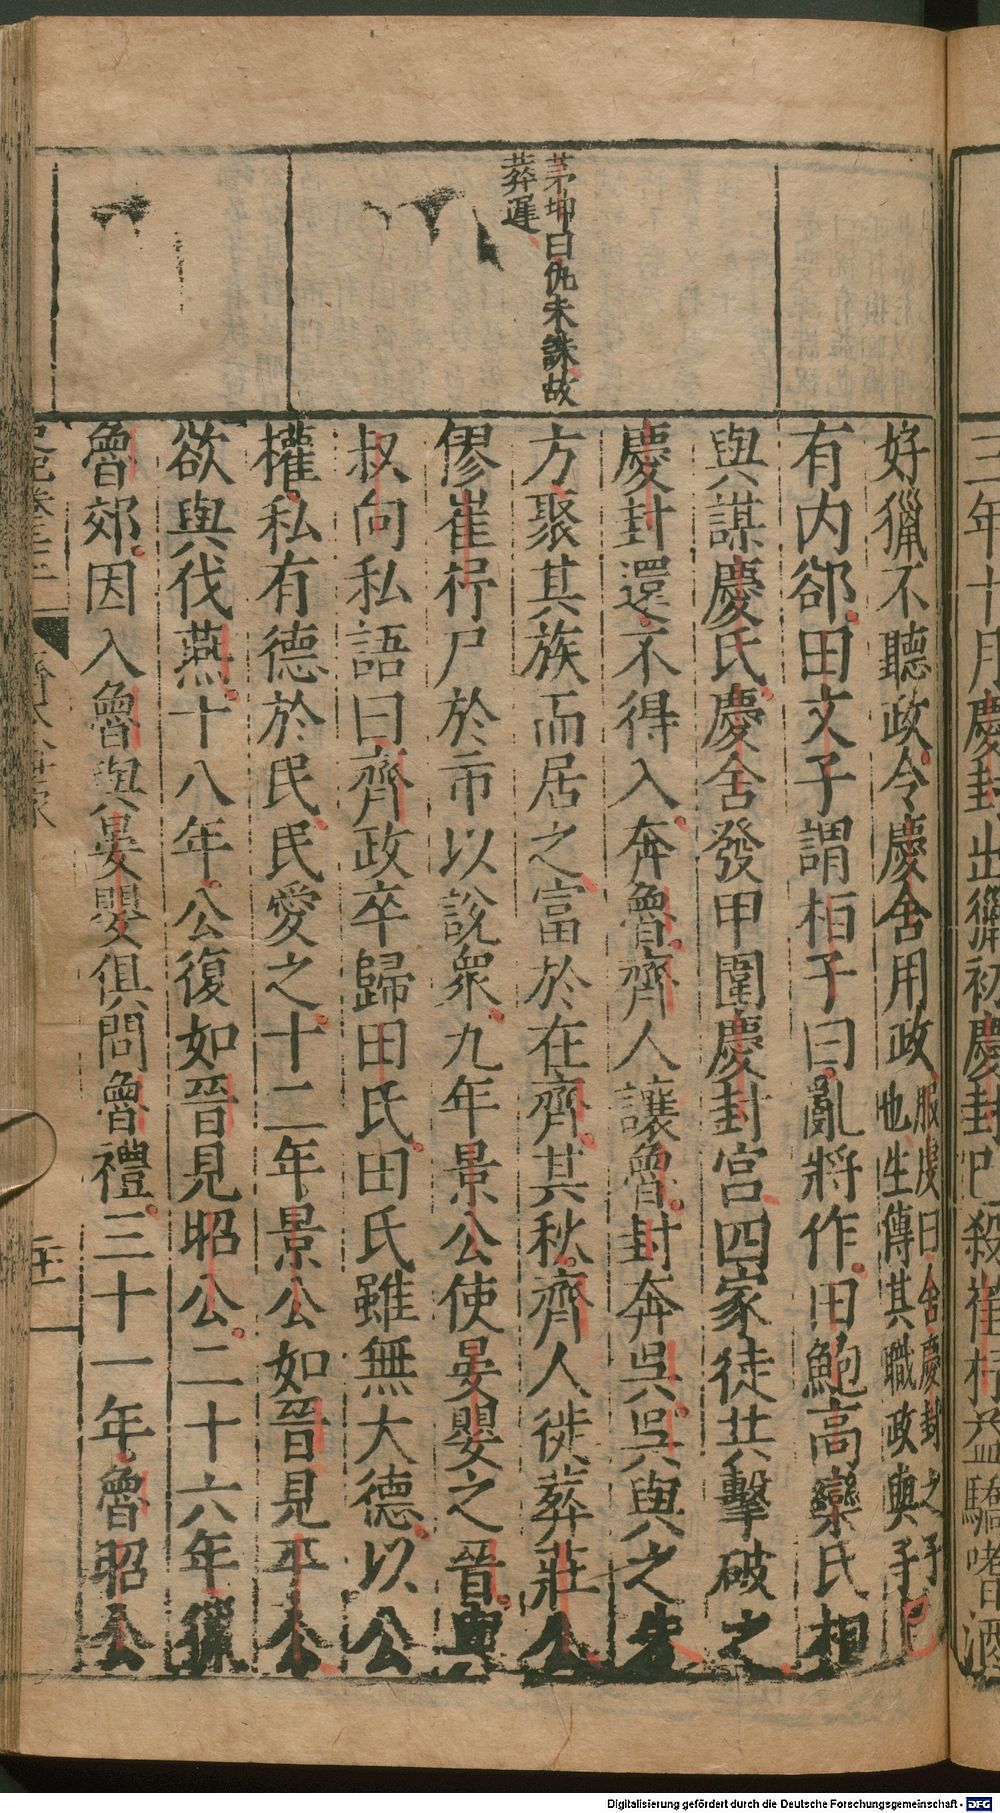 三年十月慶封出獵初慶封已殺崔杼益驕嗜酒
好獵不聽政令慶舍用政服虔曰舍慶封之子
也生傳其職政與子已
有内郤田文子謂桓子曰亂將作田鮑高欒氏相
與謀慶氏慶舍發甲圍慶封宮四家徒共擊破之
慶封還不得入奔魯齊人讓魯封奔吳吳與之朱
方聚其族而居之富於在齊其秋齊人徙葬莊公
僇崔杼尸於市以說衆九年景公使晏嬰之晉與
叔向私語曰齊政卒歸田氏田氏雖無大德以公
權私有德於民民愛之十二年景公如晉見平公
欲與伐燕十八年公復如晉見昭公二十六年獵
魯郊因入魯與晏嬰俱問魯禮三十一年魯昭公
茅坤曰仇未誅故
葬遲
齊太公世家
Digitalisierung gefördert durch die Deutsche Forschungsgemeinschaft - DFG